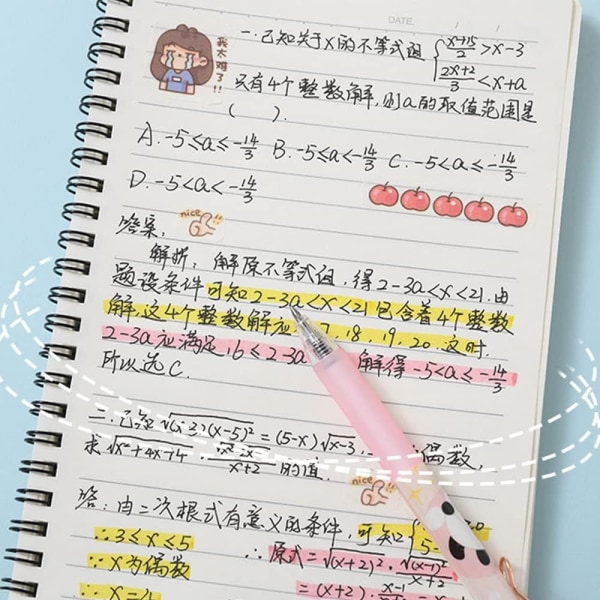 DATE. / /
我太难了!!
一.已知关于x的不等式组{(x+15)/2>x-3
(2x+2)/3<x+a
只有4个整数解,则a的取值范围是
( ).
A.-5≤a≤-14/3 B.-5≤a<-14/3 C.-5<a≤-14/3
D.-5<a<-14/3
nice
答案:
解析:解原不等式组,得2-3a<x<21.由
题设条件可知2-3a<x<21包含着4个整数
解,这4个整数解应 7,18,19,20,这时,
2-3a应满足16≤2-3a 解得-5<a≤-14/3
所以选C.
二.已知√(x-3)(x-5)²=(5-x)√x-3, 偶数,
求√x²+4x+4 x+2 的值.
nice
答:由二次根式有意义的条件,可知{
5-
∴3≤x≤5
∴原式=√(x+2)²·√(x-1)² x+2
∵x为偶数
=(x+2)·x-1
∴x=4